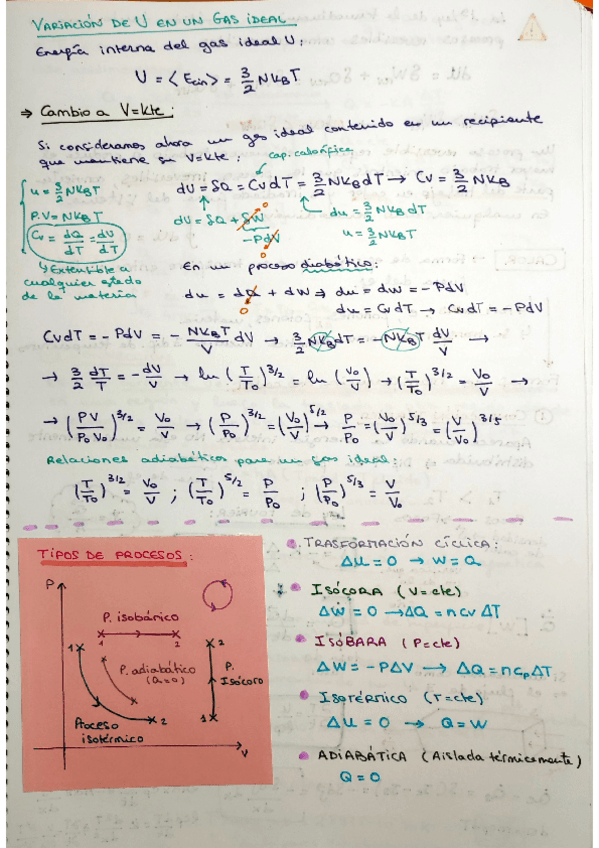 VARIACIÓN DE U EN UN GAS IDEAL
Energía interna del gas ideal U:
U = ⟨Ecin⟩ = 3/2 NkBT
⇒ Cambio a V=kte:
Si consideramos ahora un gas ideal contenido en un recipiente
que mantiene su V=kte:
cap. calorífica
dU = δQ = CvdT = 3/2 NkBdT → Cv = 3/2 NkB
u = 3/2 NkBT
P.V = NkBT
Cv = dQ/dT = dU/dT
↳ Extensible a
cualquier estado
de la materia
dU = δQ + δW → 0
-PdV → 0
du = 3/2 NkBdT
u = 3/2 NkBT
En un proceso diabático:
du = dQ + dW ⇒ du = dW = -PdV
0
du = CvdT → CvdT = -PdV
CvdT = -PdV = - NkBT/V dV → 3/2 NkBdT = -NkBT dV/V →
→ 3/2 dT/T = -dV/V → ln (T/T0)^3/2 = ln (V0/V) → (T/T0)^3/2 = V0/V →
→ (PV/P0V0)^3/2 = V0/V → (P/P0)^3/2 = (V0/V)^5/2 → P/P0 = (V0/V)^5/3 = (V/V0)^3/5
Relaciones adiabáticas para un gas ideal:
(T/T0)^3/2 = V0/V ; (T/T0)^5/2 = P/P0 ; (P/P0)^5/3 = V/V0
TIPOS DE PROCESOS:
P
P. isobárico
1 2
1
P. adiabático
(Q=0)
2
P.
Isócoro
Proceso
isotérmico
2
1
V
TRASFORMACIÓN CÍCLICA:
ΔU = 0 → W = Q
ISÓCORA (V=cte)
ΔW = 0 → ΔQ = n cv ΔT
ISÓBARA (P=cte)
ΔW = -PΔV → ΔQ = n cp ΔT
ISOTÉRMICO (T=cte)
ΔU = 0 → Q = W
ADIABÁTICA (Aislada térmicamente)
Q = 0